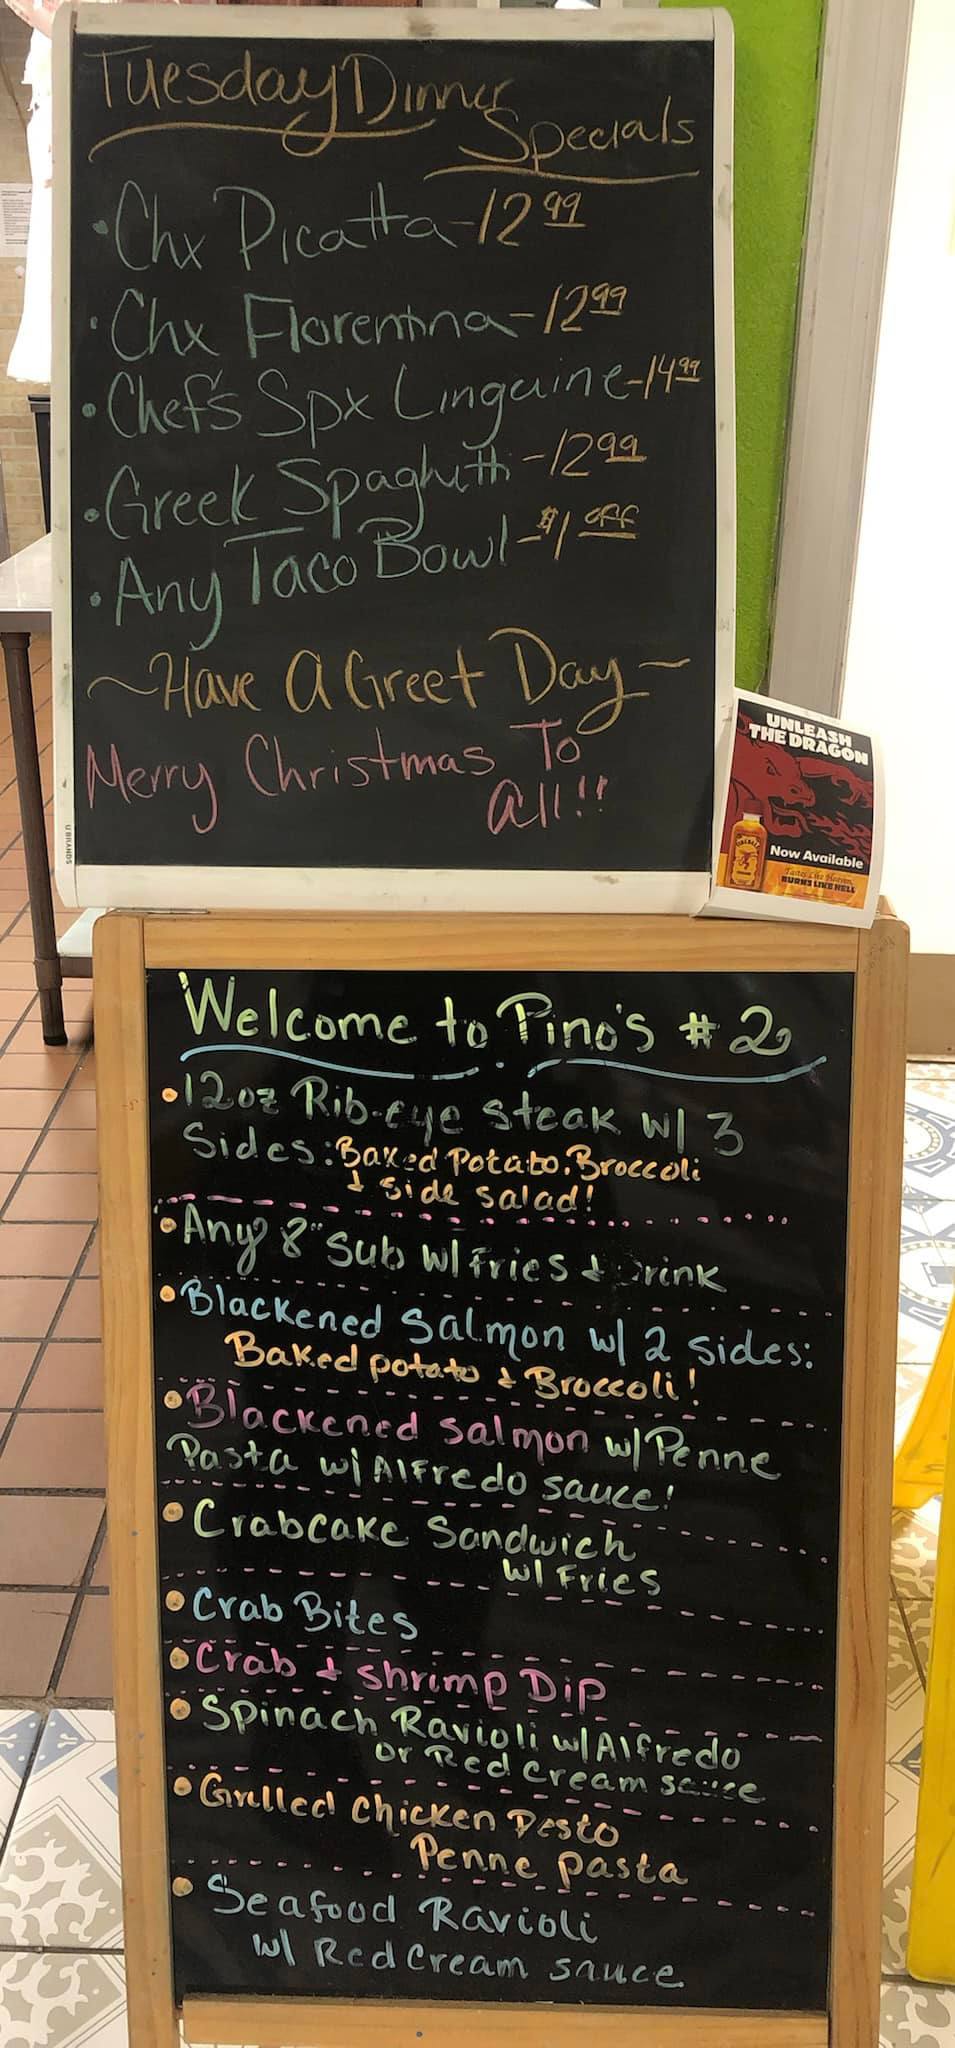 Tuesday Dinner
Specials
• Chx Picatta - 12 99
• Chx Florentina - 12 99
• Chef's Spx Linguine - 14 99
• Greek Spaghetti - 12 99
• Any Taco Bowl - $1 off
~ Have A Greet Day ~
Merry Christmas To
All!!
U BRANDS
UNLEASH
THE DRAGON
FIREBALL
Now Available
Tastes Like Heaven,
BURNS LIKE HELL
Welcome to Pino's #2
• 12oz Rib-eye steak w/ 3
Sides: Baked Potato, Broccoli
& side salad!
• Any 8" sub w/ fries & Drink
• Blackened Salmon w/ 2 sides:
Baked potato & Broccoli!
• Blackened salmon w/ Penne
Pasta w/ Alfredo sauce!
• Crabcake Sandwich
w/ Fries
• Crab Bites
• Crab & shrimp Dip
• Spinach Ravioli w/ Alfredo
or Red cream sauce
• Grilled chicken Pesto
Penne pasta
• Seafood Ravioli
w/ Red cream sauce